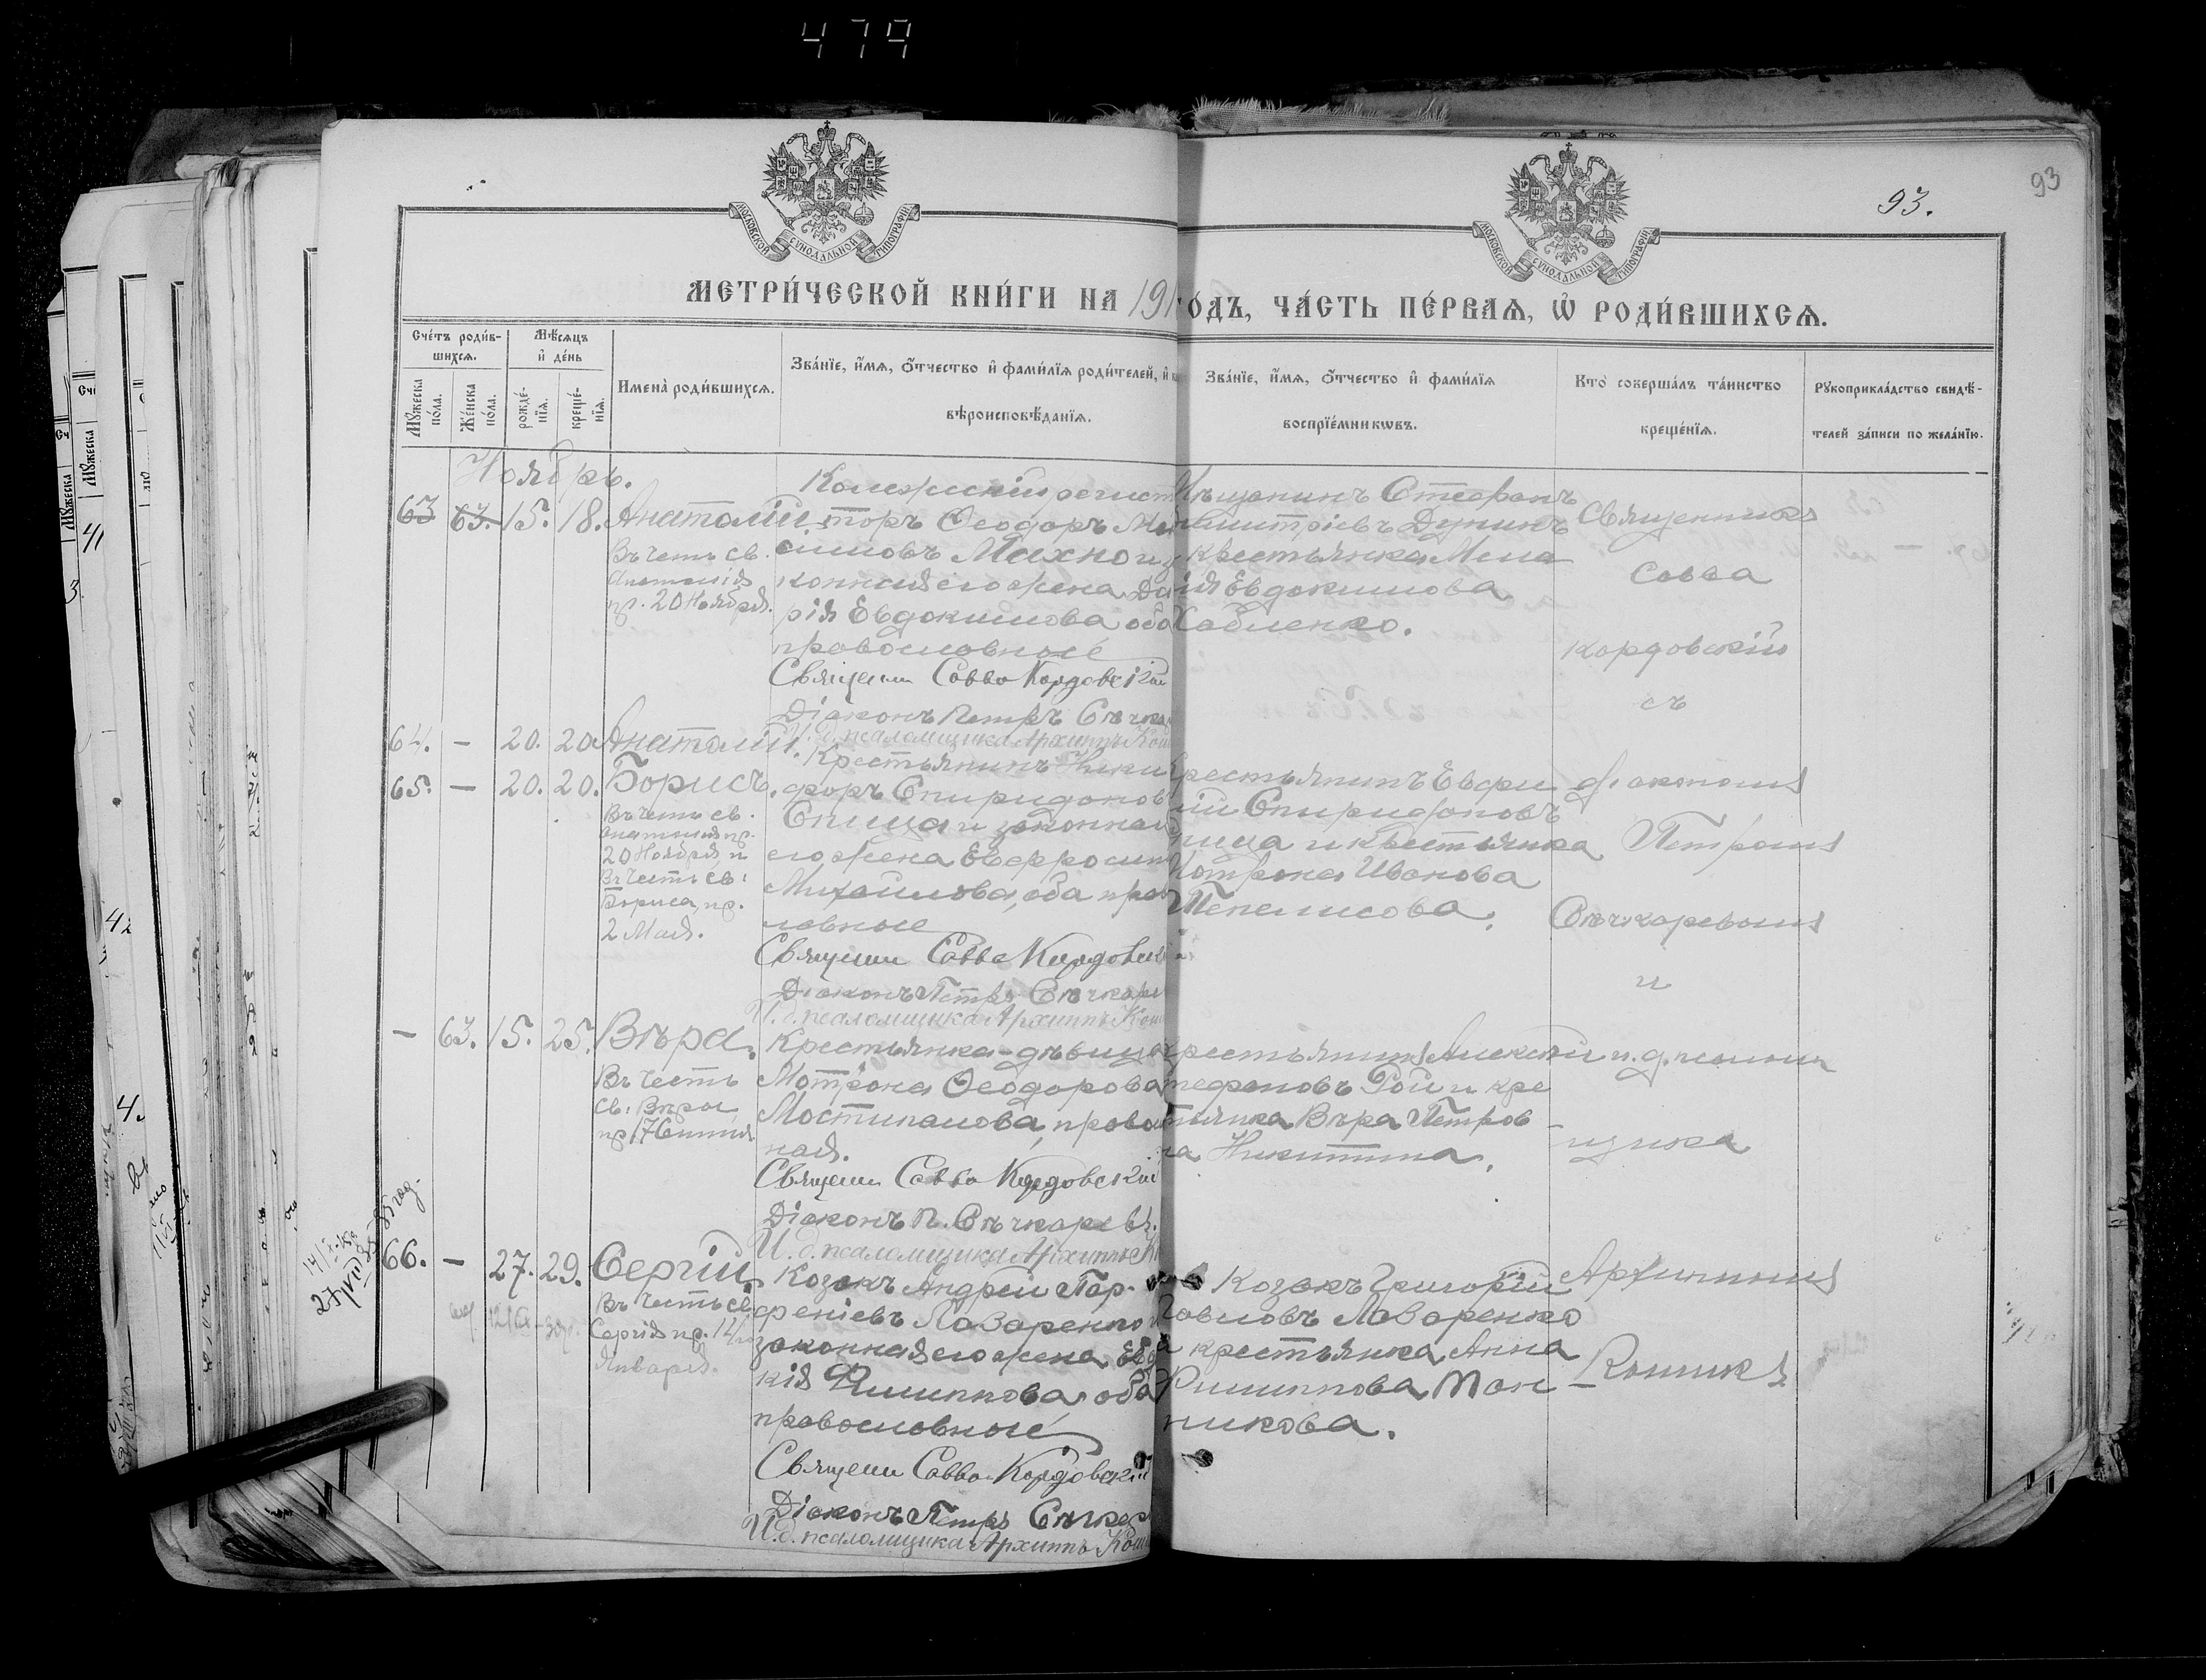 479
93
93.
МОСКОВСКОЙ СУНОДАЛЬНОЙ ТИПОГРАФІИ
МОСКОВСКОЙ СУНОДАЛЬНОЙ ТИПОГРАФІИ
МЕТРИ́ЧЕСКОЙ КНИ́ГИ НА 191
ГО́ДЪ, ЧА́СТЬ ПЕ́РВАѦ, Ѡ РОДИ́ВШИХСѦ.
Сче́тъ роди́в-
шихсѧ.
Мꙋ́жеска
по́ла.
Же́нска
по́ла.
Мѣ́сѧцъ
и҆ де́нь
рожде́-
нїѧ.
креще́-
нїѧ.
Имена̀ роди́вшихсѧ.
Зва́нїе, и҆́мѧ, ѻ҆́тчество и҆ фами́лїѧ роди́телей, и҆
вѣроисповѣ́данїѧ.
Зва́нїе, и҆́мѧ, ѻ҆́тчество и҆ фами́лїѧ
воспрїе́мникѡвъ.
Кто̀ соверша́лъ та́инство
креще́нїѧ.
Рꙋкоприкла́дство свидѣ́-
телей за́писи по жела́нїю.
Ноябрь.
63 63. 15. 18. Анатолій
Въ честь св.
Анатолія
пр. 20 Ноября.
Колежскій регист
торъ Ѳеодоръ Ма
симовъ Махно и
конная его жена Да
рія Евдокимова оба
православные
Священ Савва Кордовскій
Діаконъ Петръ Сѣчка
И. д. псаломщика Архиппъ Кош
Мѣщанинъ Стефанъ
Димитріевъ Дунинъ
крестьянка Мела
нія Евдокимова
Хабленко.
Священникъ
Савва
Кордовскій
съ
64. — 20. 20 Анатолій.
65. — 20. 20. Борисъ.
Въ честь св.
Анатолія пр.
20 Ноября, и
Въ честь св.
Бориса, пр.
2 Мая.
Крестьянинъ Ники
форъ Спиридонов
Спица и законная
его жена Евфросин
Михайлова, оба прав
лавные
Священ Савва Кордовскій
Діаконъ Петръ Сѣчкар
И. д. псаломщика Архиппъ Кош
Крестьянинъ Евфи
мій Спиридоновъ
пица и крестьянка
Мотрона Иванова
Пенелисова.
діакономъ
Петромъ
Сѣчкаревымъ
и
— 63. 15. 25. Вѣра.
Въ честь
св. Вѣры
пр 17 Сентяб
Крестьянка-дѣвица
Мотрона Ѳеодорова
Мостипанова, правос
ная.
Священ Савва Кордовскій
Діаконъ П. Сѣчкаревъ.
И. д. псаломщика Архиппъ К
рестьянинъ Алексѣй
тефановъ Рой и кре
тьянка Вѣра Петров
на Никитина.
и. д. псалом
щика
66. — 27. 29. Сергій.
Въ честь св.
Сергія пр. 12
Января.
Козакъ Андрей Пар-
феніевъ Лазаренко и
законная его жена Евдо
кія Филиппова, оба
православные
Священ Савва Кордовскій
Діаконъ Петръ Сѣчкар
И. д. псаломщика Архиппъ Кош
Козакъ Григорій
Павловъ Лазаренко
и крестьянка Анна
Филиппова Пон
никова.
Архиппомъ
Кошикъ